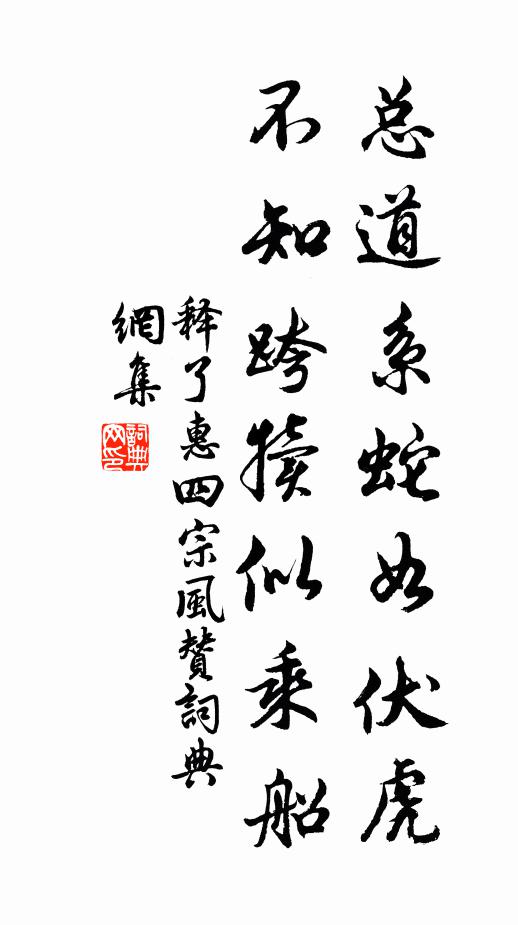 总道系蛇如伏虎
不知跨犊似乘船
释了惠四宗風赞詞典
網集
詞典網印